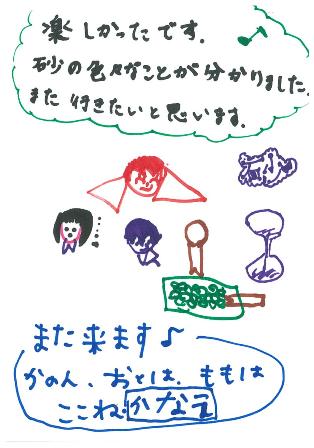 楽しかったです。
砂の色々なことが分かりました。
また行きたいと思います。
また来ます♪
かのん、おとは、ももは
ここね、かなえ